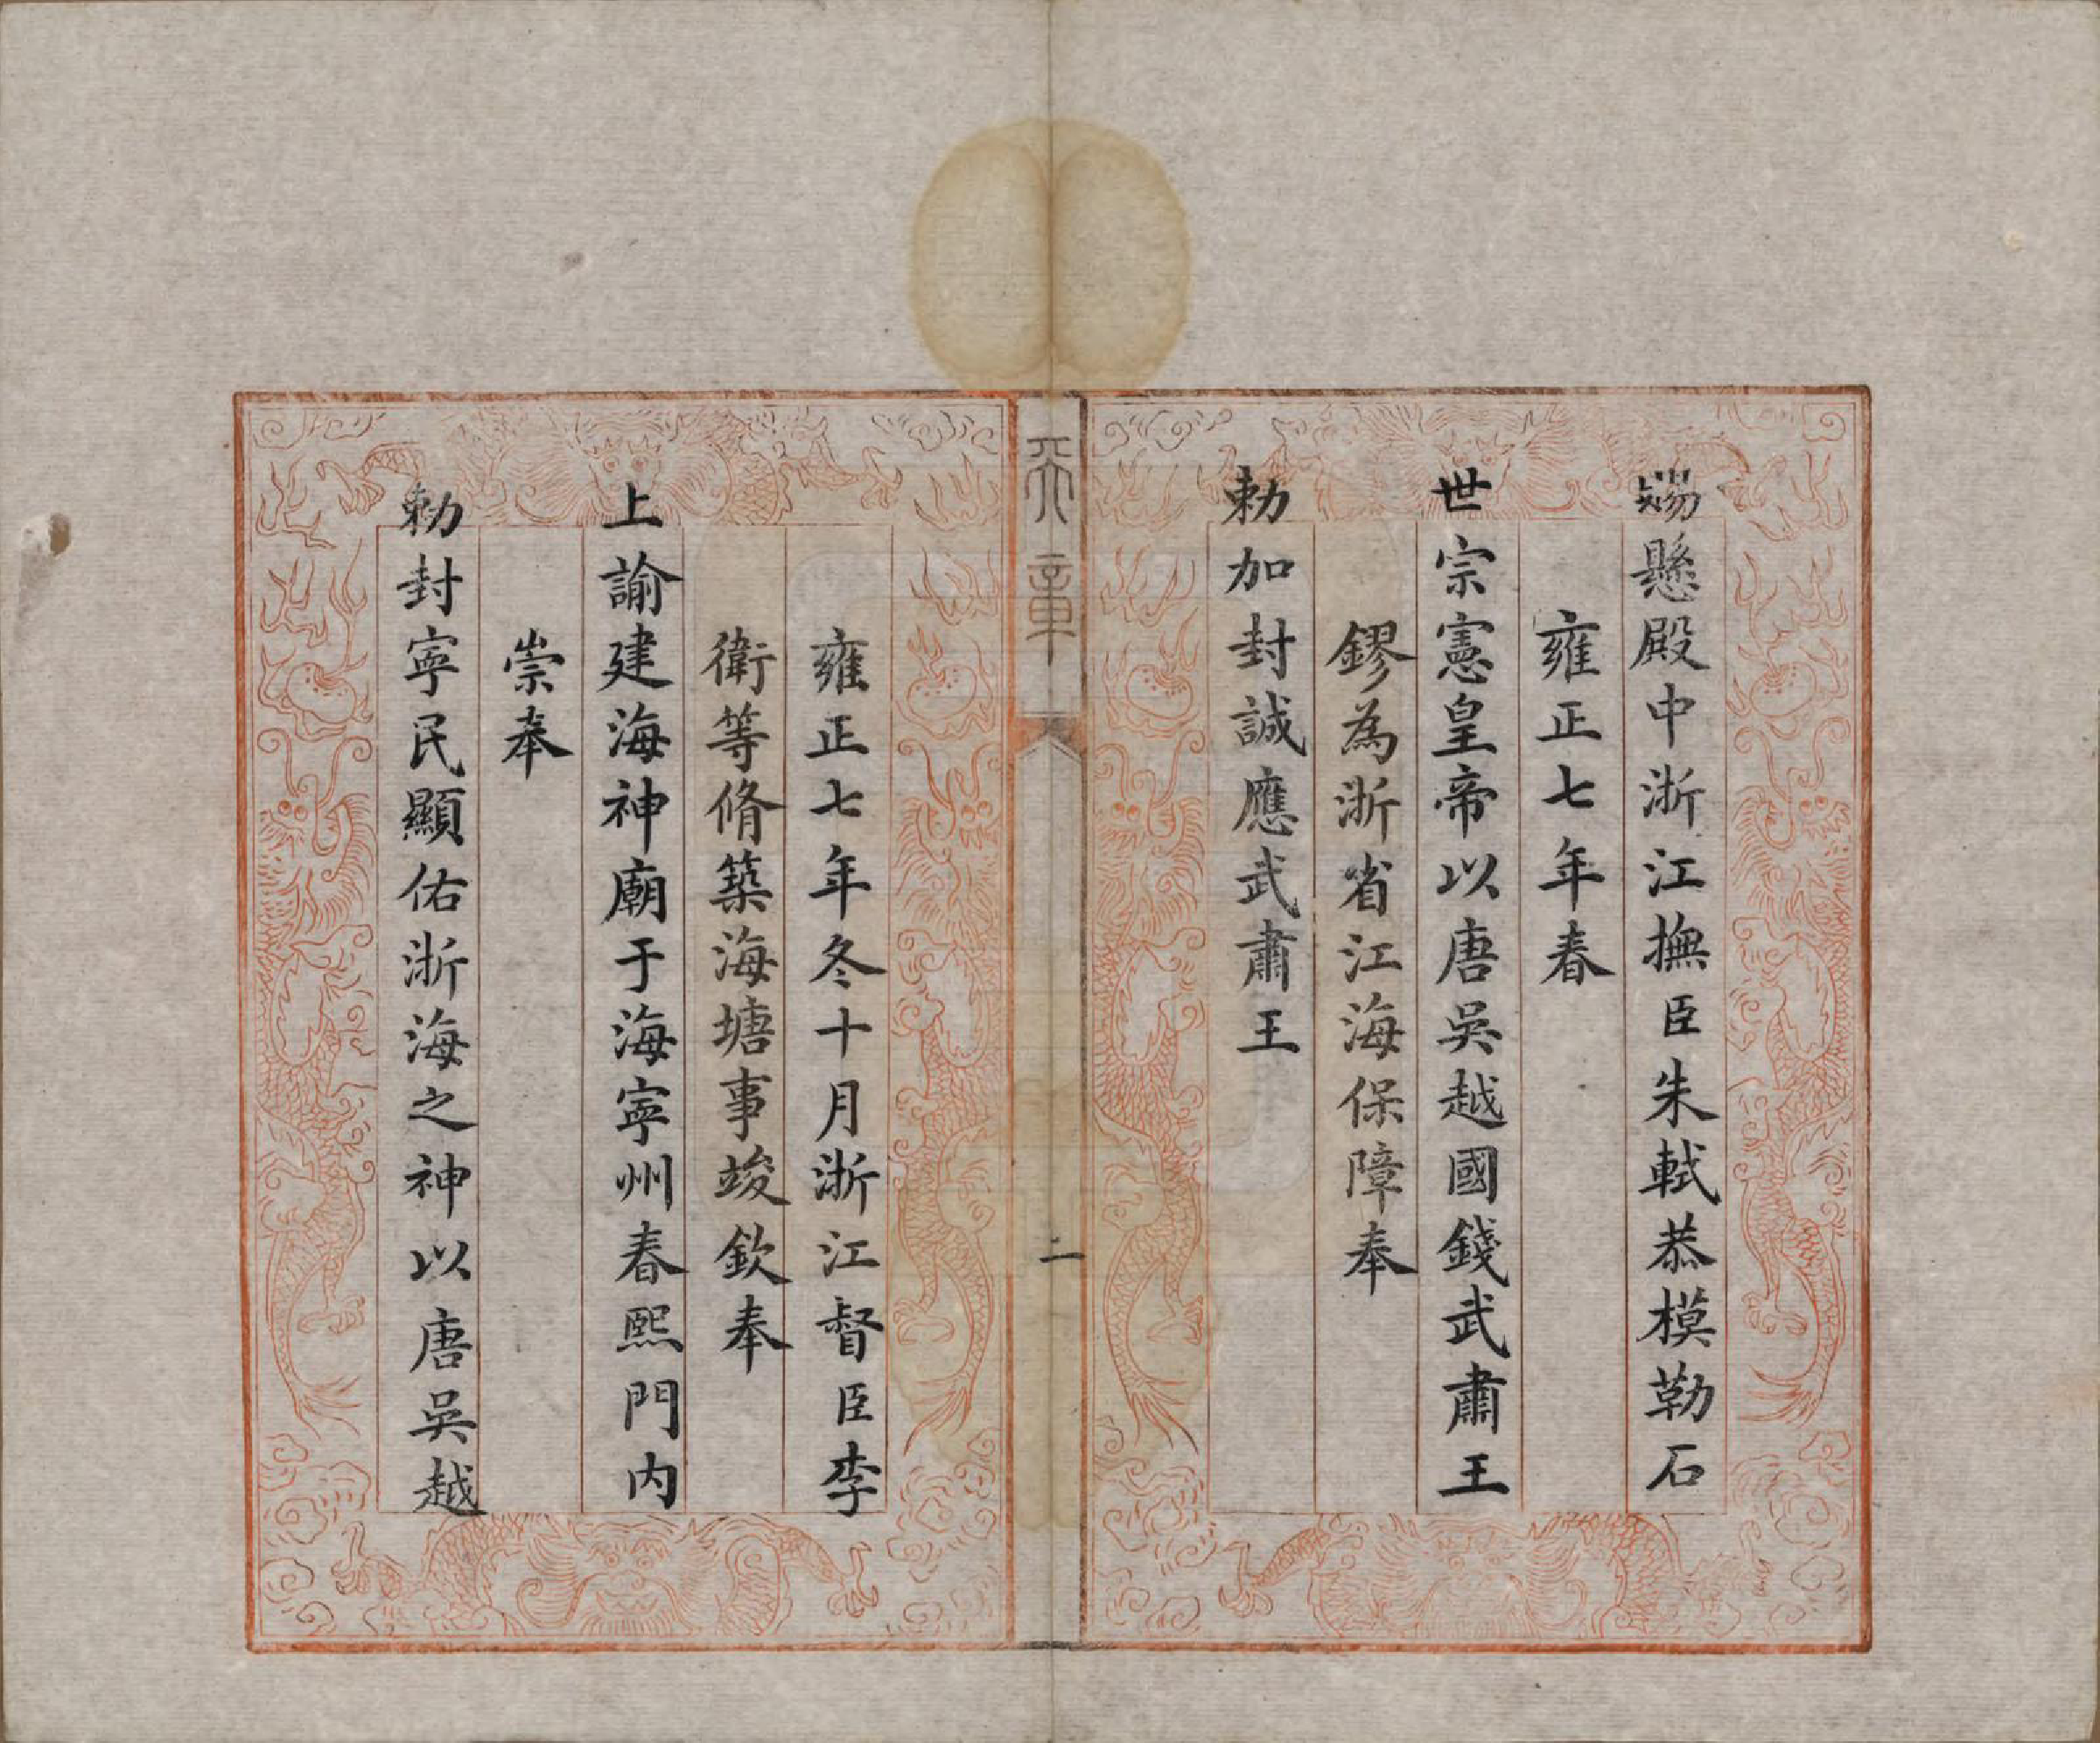 賜懸殿中浙江撫臣朱軾恭模勒石
雍正七年春
世宗憲皇帝以唐吳越國錢武肅王
鏐為浙省江海保障奉
勅加封誠應武肅王
天章
二
雍正七年冬十月浙江督臣李
衛等脩築海塘事竣欽奉
上諭建海神廟于海寧州春熙門内
崇奉
勅封寧民顯佑浙海之神以唐吳越